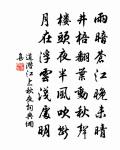 雨暗苍江晚未晴
井梧翻叶动秋声
楼头夜半风吹断
月在浮云浅处明
道潜江上秋夜词典网
集